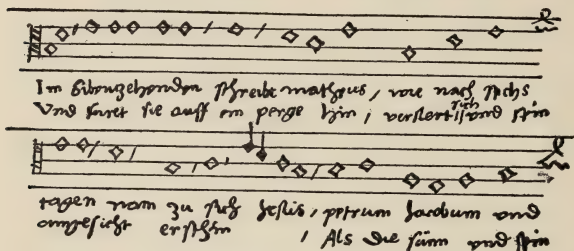 Im Sibenzehenden schreibt matheus, wie nach sechs
Und füret sie auff ein perge hin, verklert sich und sein
tagen nam zu sich Jesus, petrum Jacobum und
angesicht erschin / Als die sunn und sein